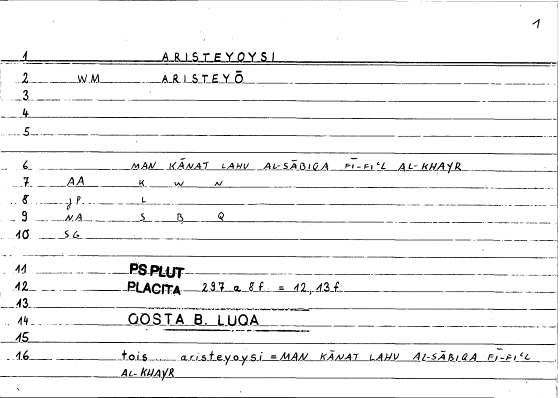 1
1 ARISTEYOYSI
2 WM ARISTEYŌ
3
4
5
6 MAN KĀNAT LAHU AL-SĀBIQA FĪ-FIʿL AL-KHAYR
7 AA K W N
8 JP L
9 NA S B Q
10 SG
11 PS.PLUT
12 PLACITA 297 a 8f. = 12,13f.
13
14 QOSTA B. LUQA
15
16 tois aristeyoysi = MAN KĀNAT LAHU AL-SĀBIQA FĪ-FIʿL
AL-KHAYR